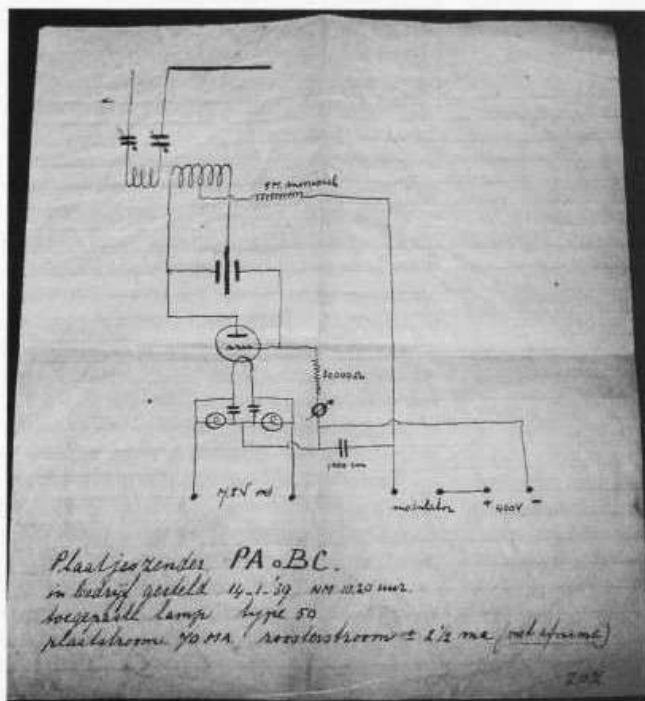 10.000 Ω
1000 cm
7,5V
modulator + 400V −
Plaatjeszender PAoBC.
in bedrijf gesteld 14-1-'39 NM 10.20 uur.
toegepaste lamp type 50
plaatstroom 70 MA. roosterstroom ± 2 1/2 ma